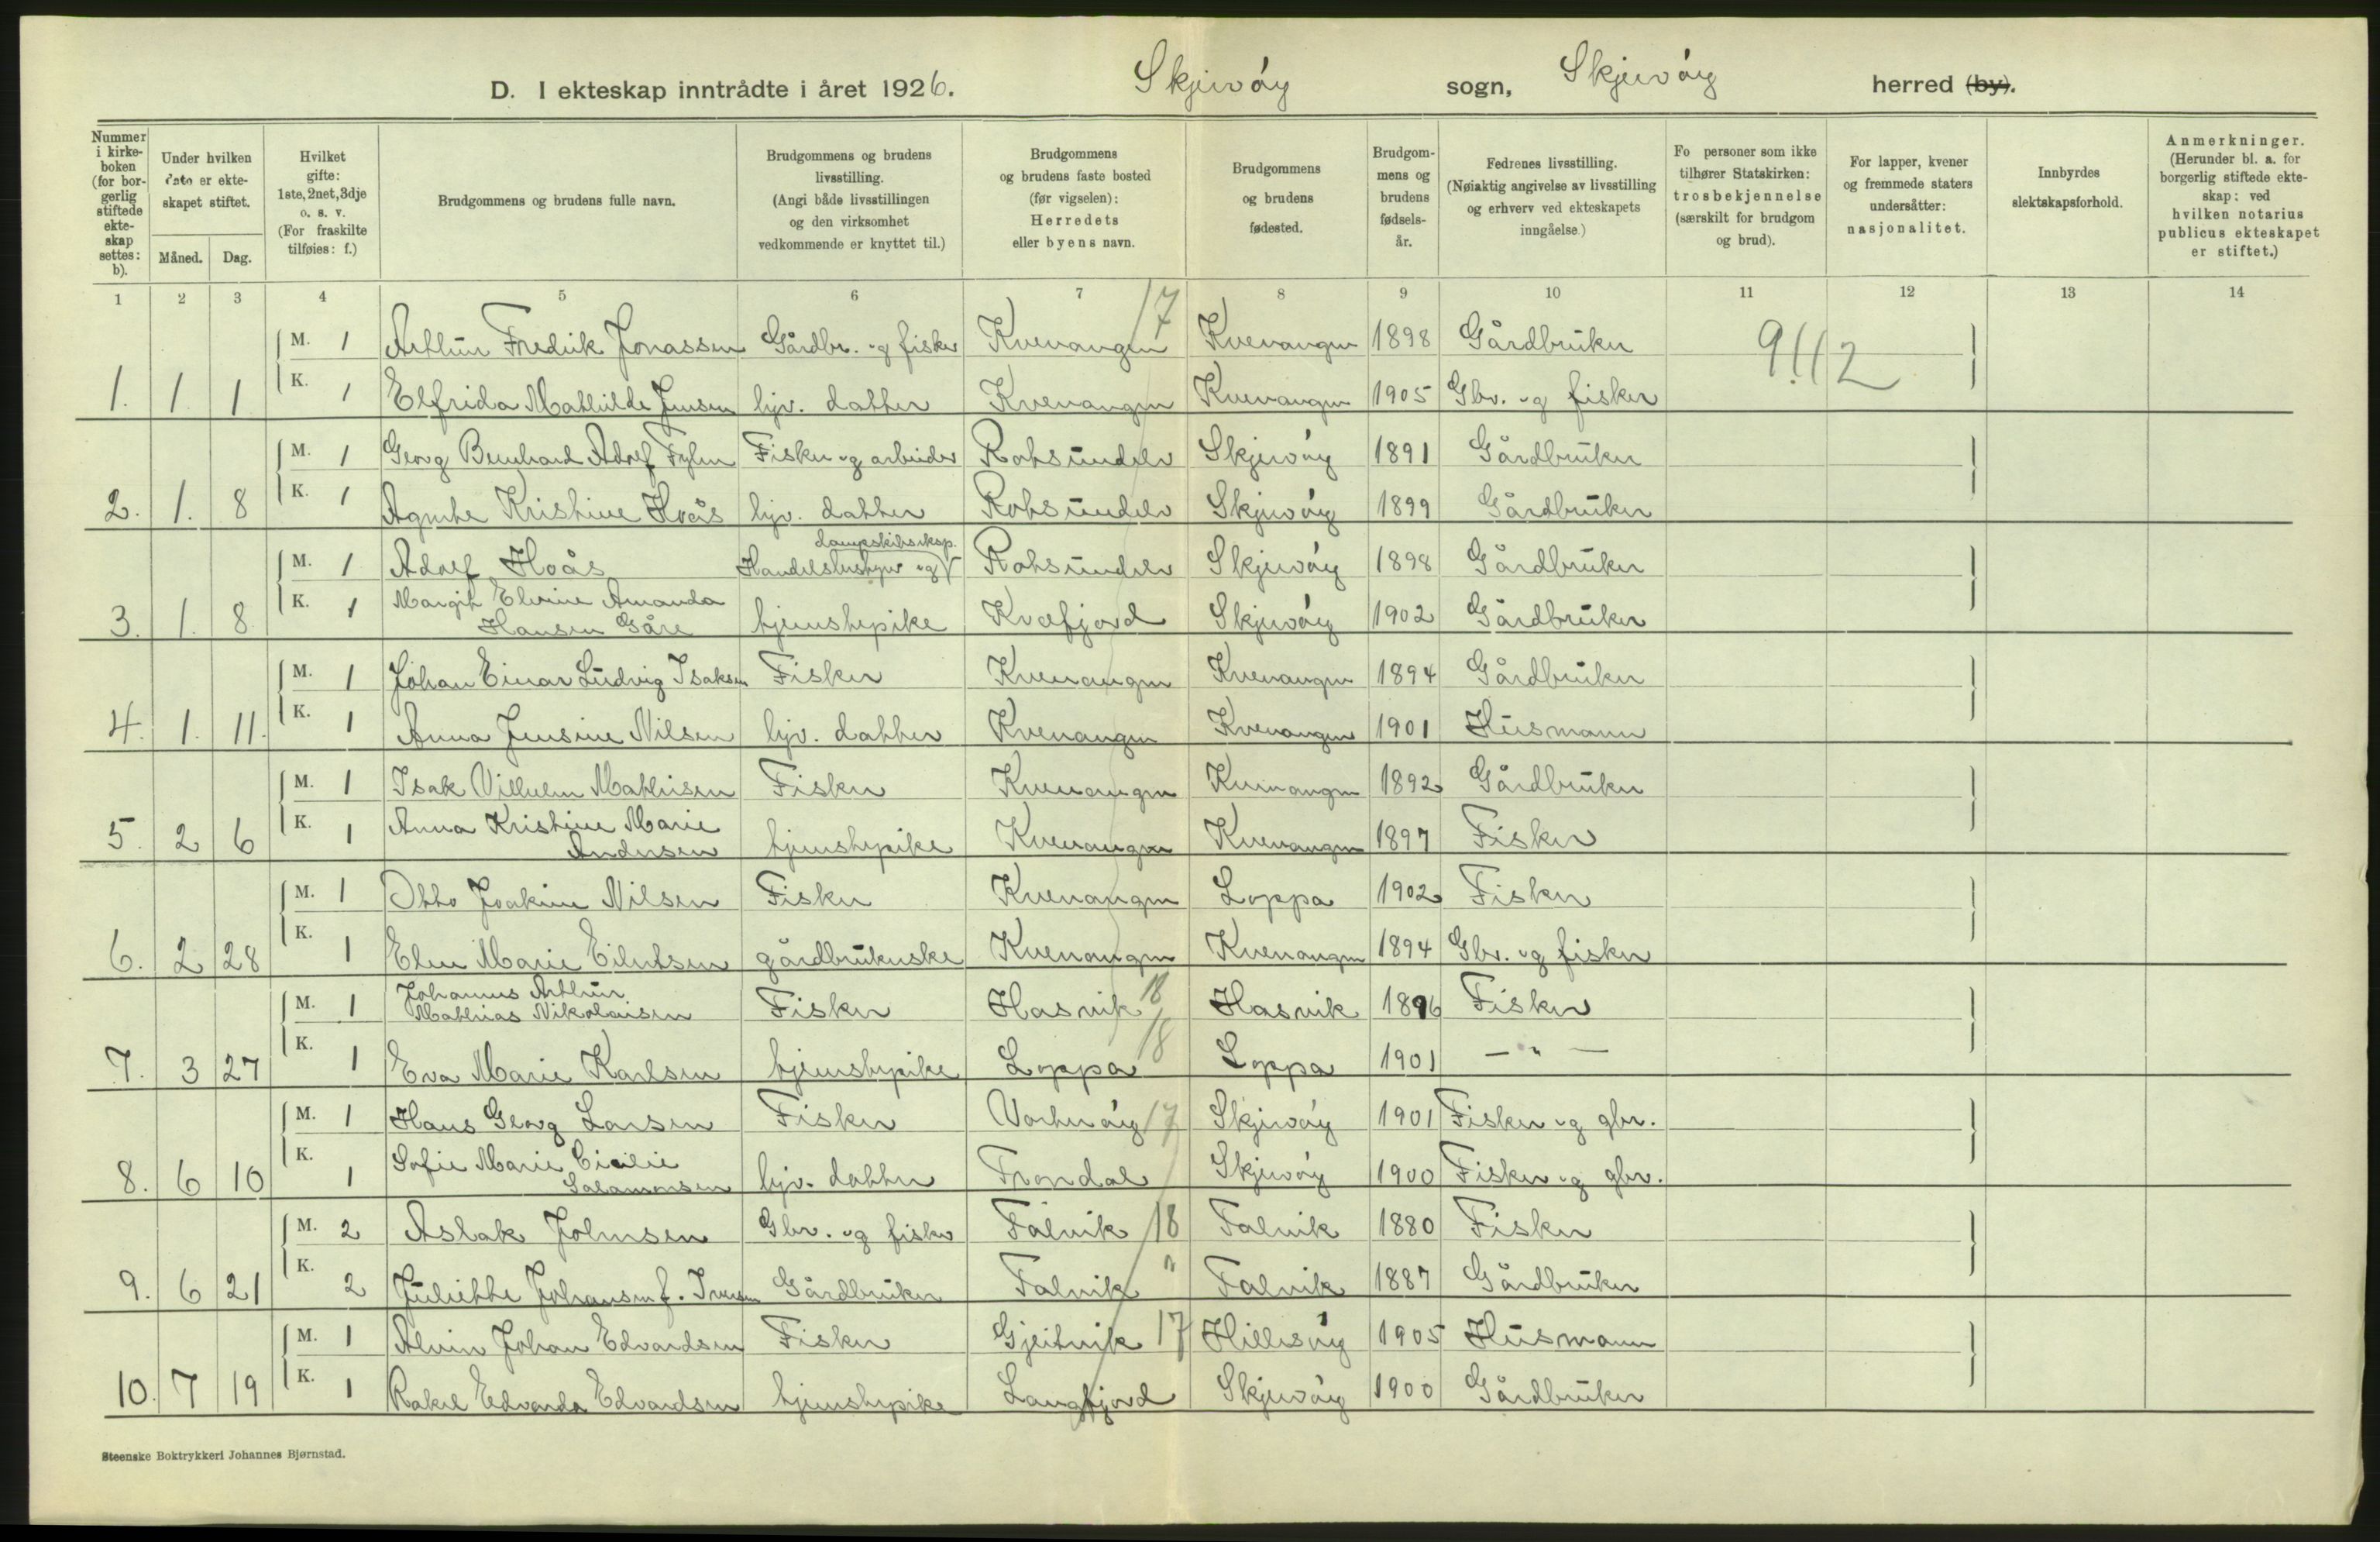 D. I ekteskap inntrådte i året 1926. Skjervöy sogn, Skjervöy herred (by).
Nummer i kirkeboken (for borgerlig stiftede ekteskap settes: b).
Under hvilken dato er ekteskapet stiftet.
Måned. Dag.
Hvilket gifte: 1ste, 2net, 3dje o. s. v. (For fraskilte tilføies: f.)
Brudgommens og brudens fulle navn.
Brudgommens og brudens livsstilling. (Angi både livsstillingen og den virksomhet vedkommende er knyttet til.)
Brudgommens og brudens faste bosted (før vigselen): Herredets eller byens navn.
Brudgommens og brudens fødested.
Brudgommens og brudens fødselsår.
Fedrenes livsstilling. (Nøiaktig angivelse av livsstilling og erhverv ved ekteskapets inngåelse.)
Fo personer som ikke tilhører Statskirken: trosbekjennelse (særskilt for brudgom og brud).
For lapper, kvener og fremmede staters undersåtter: nasjonalitet.
Innbyrdes slektskapsforhold.
Anmerkninger. (Herunder bl. a. for borgerlig stiftede ekteskap: ved hvilken notarius publicus ekteskapet er stiftet.)
1 2 3 4 5 6 7 8 9 10 11 12 13 14
M. 1 Arthur Fredrik Jonassen Gårdbr. og fisker Kvenangen 17 Kvenangen 1898 Gårdbruker
1. 1. 1 K. 1 Elfrida Mathilde Jensen hjv. datter Kvenangen Kvenangen 1905 Gbr. og fisker
M. 1 Georg Bernhard Adolf Fisker og arbeider Rotsundelv Skjervöy 1891 Gårdbruker
2. 1. 8 K. 1 Agnethe Kristine Hoås hjv. datter Rotsundelv Skjervöy 1899 Gårdbruker
dampskibseksp.
M. 1 Adolf Hoås Handelsbestyrer og Rotsundelv Skjervöy 1898 Gårdbruker
Margit Elvine Amanda
3. 1. 8 K. 1 Hansen Gåre tjenestepike Kvæfjord Skjervöy 1902 Gårdbruker
M. 1 Johan Einar Ludvig Isaksen Fisker Kvenangen Kvenangen 1894 Gårdbruker
4. 1. 11. K. 1 Anna Jensine Nilsen hjv. datter Kvenangen Kvenangen 1901 Husmann
M. 1 Isak Vilhelm Mathisen Fisker Kvenangen Kvenangen 1892 Gårdbruker
Anna Kristine Marie
5. 2 6 K. 1 Andersen tjenestepike Kvenangen Kvenangen 1897 Fisker
M. 1 Otto Joakim Nilsen Fisker Kvenangen Loppa 1902 Fisker
6. 2 28 K. 1 Elen Marie Eilertsen gårdbrukerske Kvenangen Kvenangen 1894 Gbr. og fisker
Johannes Arthur
M. 1 Mathias Nikolaisen Fisker Hasvik 18 Hasvik 1896 Fisker
7. 3 27 K. 1 Eva Marie Karlsen tjenestepike Loppa 18 Loppa 1901 — " —
M. 1 Hans Georg Larsen Fisker Vorterøy 17 Skjervöy 1901 Fisker og gbr.
Sofie Marie Cicilie
8. 6 10 K. 1 Salamonsen hjv. datter Trondal Skjervöy 1900 Fisker og gbr.
M. 2 Aslak Johnsen Gbr. og fisker Talvik 18 Talvik 1880 Fisker
9. 6 21 K. 2 Juliette Johansen f. Iversen Gårdbruker Talvik " Talvik 1887 Gårdbruker
M. 1 Alvin Johan Edvardsen Fisker Gjeitvik 17 Hillesöy 1905 Husmann
10. 7 19 K. 1 Rakel Edvarda Edvardsen tjenestepike Langfjord Skjervöy 1900 Gårdbruker
Steenske Boktrykkeri Johannes Bjørnstad.